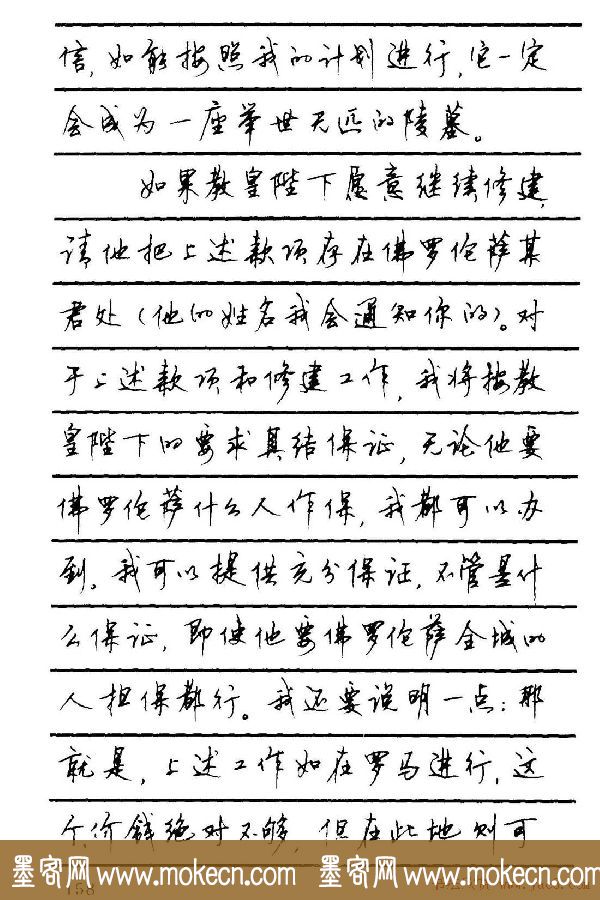 信，如能按照我的计划进行，它一定
会成为一座举世无匹的陵墓。
如果教皇陛下愿意继续修建，
请他把上述款项存在佛罗伦萨某
君处（他的姓名我会通知你的）。对
于上述款项和修建工作，我将按教
皇陛下的要求具结保证，无论他要
佛罗伦萨什么人作保，我都可以办
到，我可以提供充分保证，不管是什
么保证，即使他要佛罗伦萨全城的
人担保都行。我还要说明一点：那
就是，上述工作如在罗马进行，这
个价钱绝对不够，但在此地则可
墨客网 www.mokecn.com 墨客网 www.mokecn.com
158